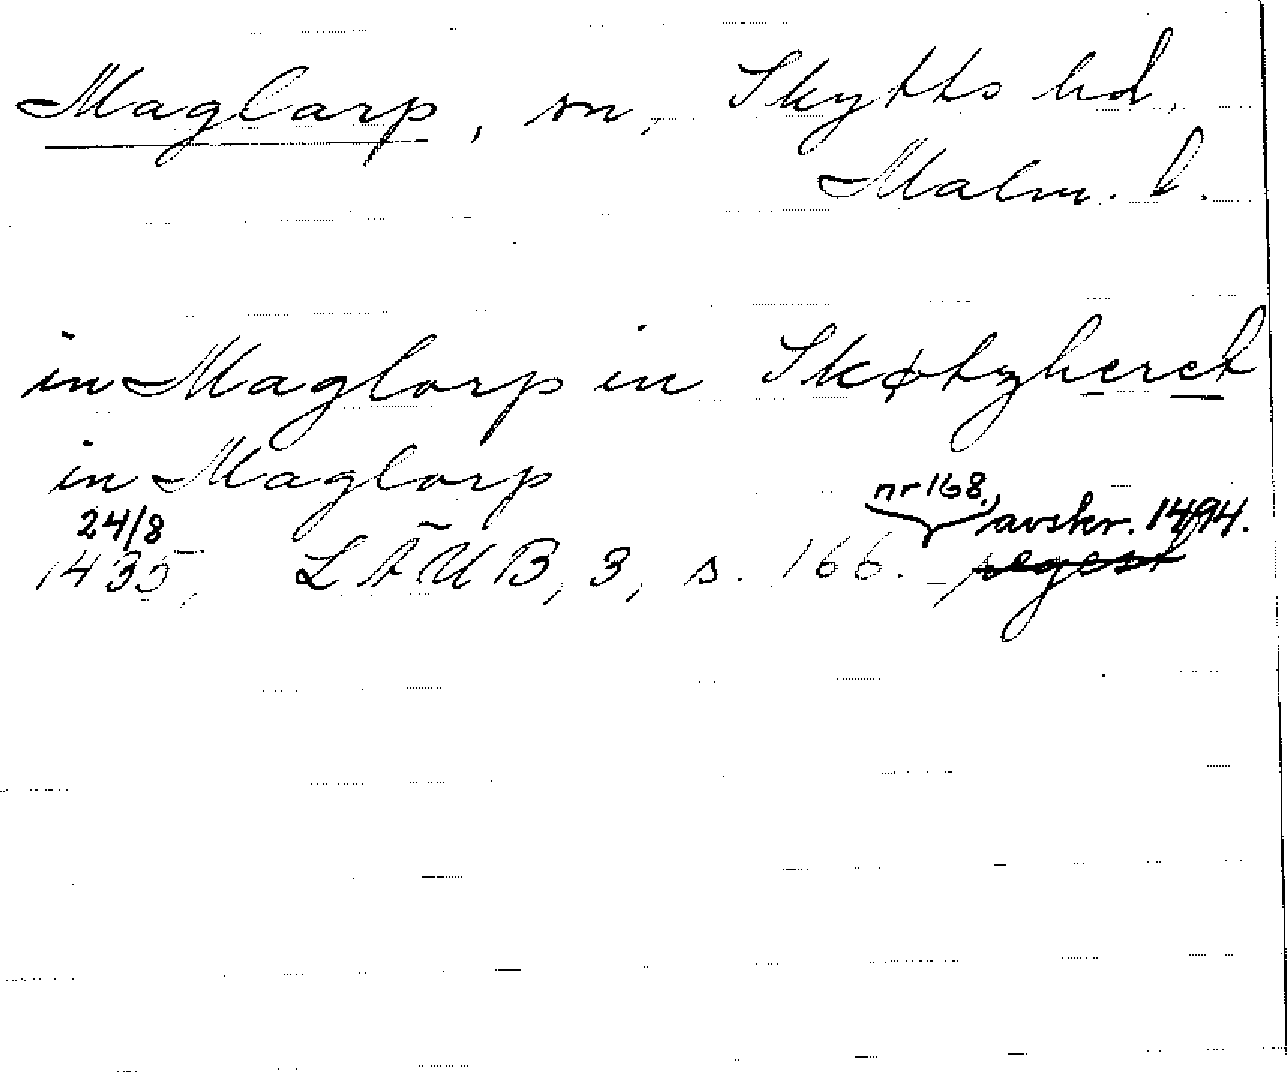 Maglarp, sn, Skytts hd,
Malm. l.
in Maglorp in Skøtzheret
in Maglorp
24/8 nr 168, avskr. 1494.
1435, LÄUB, 3, s. 166. regest